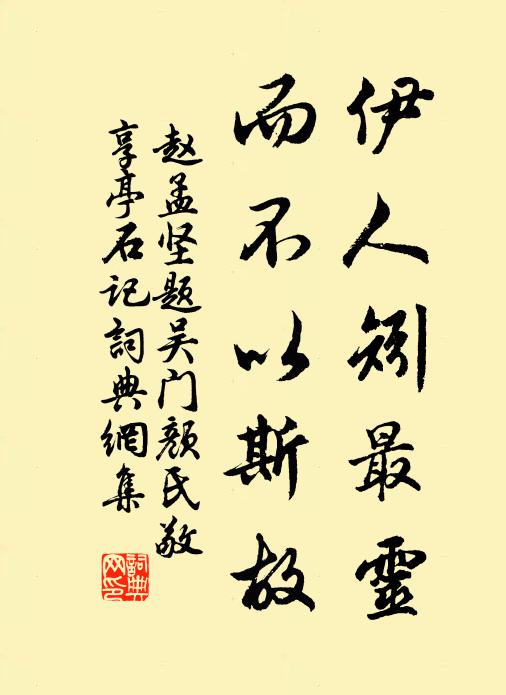 伊人矧最靈
而不以斯故
赵孟坚题吴门颜氏敬
享亭石记詞典網集
詞典網印